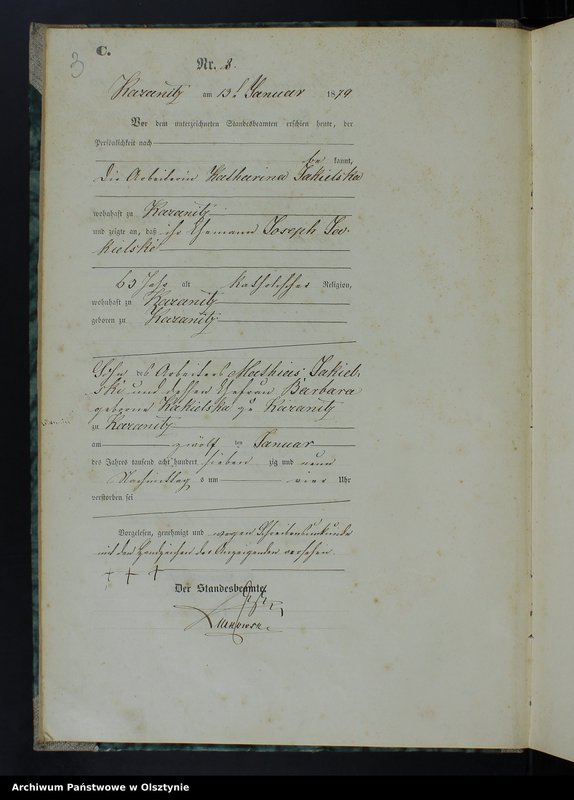 3
C.
Nr. 3.
Kazanitz am 13ten Januar 1879
Vor dem unterzeichneten Standesbeamten erschien heute, der
Persönlichkeit nach
be kannt,
die Arbeiterin Katharina Jakielska
wohnhaft zu Kazanitz
und zeigte an, daß ihr Ehemann Joseph Ja-
kielski
63 Jahr alt katholischer Religion,
wohnhaft zu Kazanitz
geboren zu Kazanitz
Sohn des Arbeiters Mathias Jakiel-
ski und dessen Ehefrau Barbara
geborne Kakielska zu Kazanitz
zu Kazanitz
am zwölf ten Januar
des Jahres tausend acht hundert sieben zig und neun
Nachmittag s um vier Uhr
verstorben sei
Vorgelesen, genehmigt und wegen Schreibensunkunde
mit den Handzeichen des Anzeigenden versehen.
+ + +
Der Standesbeamte.
Archiwum Państwowe w Olsztynie